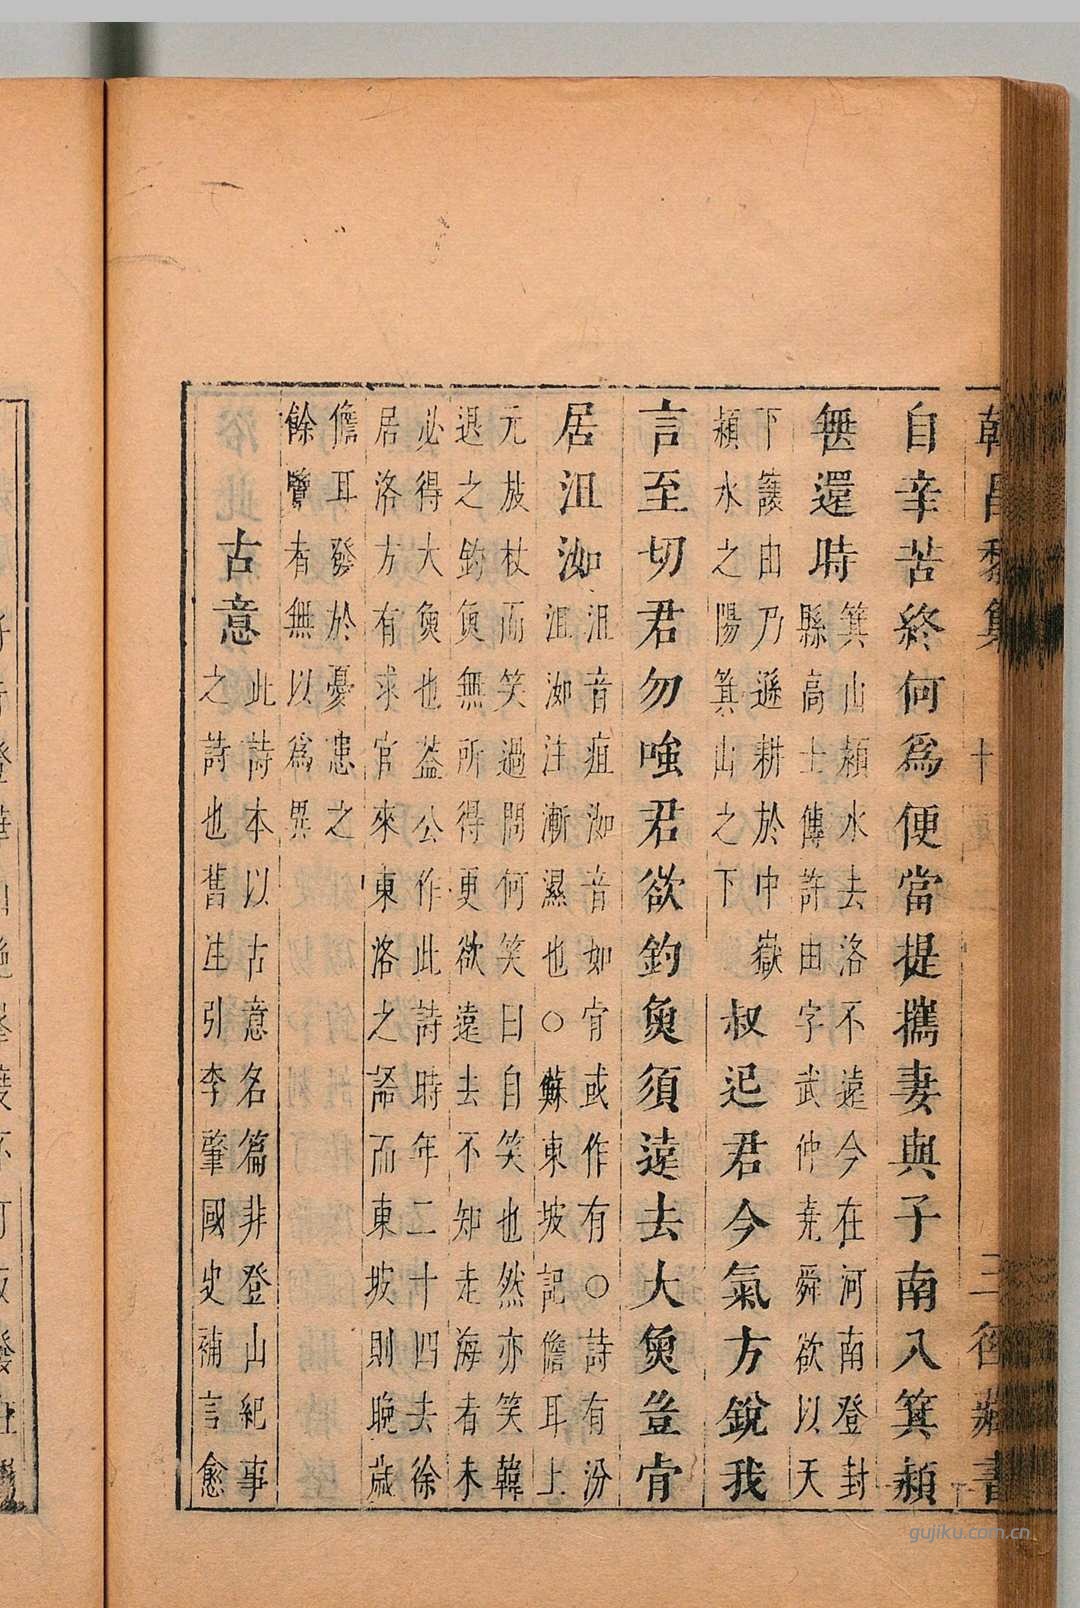 韓昌黎集
三徑藏書
自辛苦終何為便當提攜妻與子南入箕潁
無還時箕山潁水去洛不遠今在河南登封
縣高士傳許由字武仲堯舜欲以天
下讓由乃遜耕於中嶽
潁水之陽箕山之下叔𨒪君今氣方銳我
言至切君勿嗤君欲釣魚須遠去大魚豈肯
居沮洳沮音疽洳音如肯或作有○詩有汾
沮洳注漸濕也○蘇東坡記儋耳上
元放杖而笑過問何笑曰自笑也然亦笑韓
退之釣魚無所得更欲遠去不知走海者未
必得大魚也葢公作此詩時年二十四去徐
居洛方有求官來東洛之語而東坡則晚歲
儋耳發於憂患之
餘覽者無以為異
古意此詩本以古意名篇非登山紀事
之詩也舊注引李肇國史補言愈
gujiku.com.cn